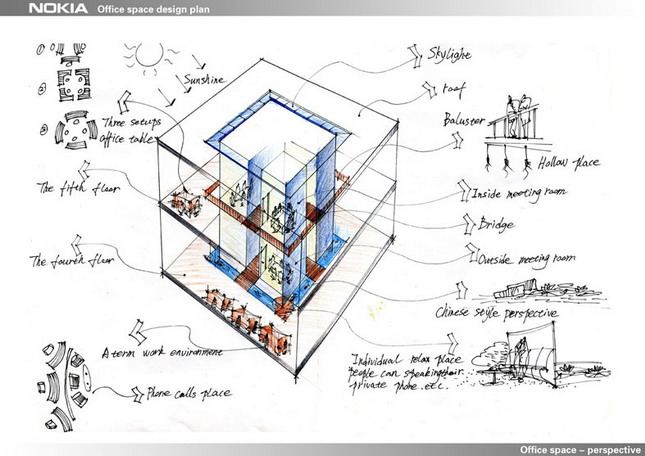 NOKIA Office space design plan
Skylight
Sunshine
roof
Three setups
office table
Baluster
Hollow place
The fifth floor
Inside meeting room
Bridge
The fourth floor
Outside meeting room
Chinese style perspective
A term work environment
Individual relax place
people can speaking their
private phone .etc.
Phone calls place
Office space – perspective